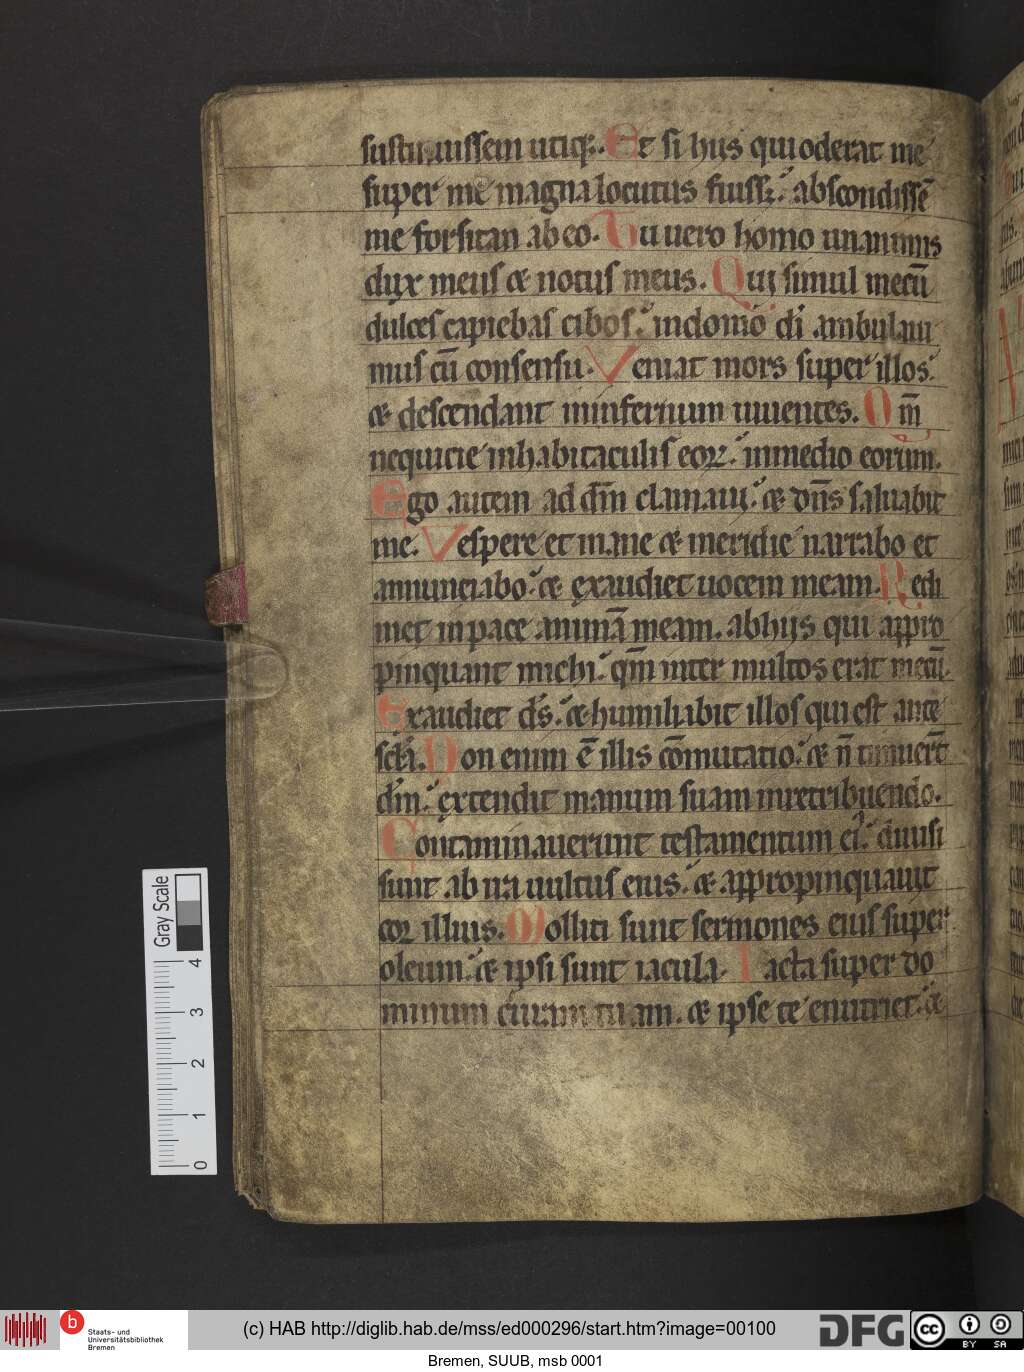 sustinuissem utiq;. Et si hiis qui oderat me
super me magna locutus fuiss&#x21; abscondissē
me forsitan ab eo. Tu uero homo unanimis
dux meus & notus meus. Qui simul mecū
dulces capiebas cibos. in domo di ambulaui
mus cū consensu. Veniat mors super illos.
& descendant in infernum uiuentes. Qm̄
nequicie in habitaculis eoꝝ. in medio eorum.
Ego autem ad dm̄ clamaui. & dn̄s saluabit
me. Vespere et mane & meridie narrabo et
annunciabo. & exaudiet uocem meam. Redi
met in pace animā meam. ab hiis qui appro
pinquant michi. qm̄ inter multos erat mecū.
Exaudiet ds̄. & humiliabit illos qui est ante
scl̄a. Non enim ē illis cōmutatio. & n̄ timuert̄
dm̄. extendit manum suam in retribuendo.
Contaminauerunt testamentum ei. diuisi
sunt ab ira uultus eius. & appropinquauit
cor illius. Molliti sunt sermones eius super
oleum. & ipsi sunt iacula. Iacta super do
minum curam tuam. & ipse te enutriet. &
Gray Scale
4
3
2
1
0
b
Staats- und
Universitätsbibliothek
Bremen
(c) HAB http://diglib.hab.de/mss/ed000296/start.htm?image=00100
DFG
cc
BY SA
Bremen, SUUB, msb 0001